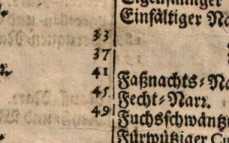 Einfältiger
33
37
41
Faßnachts=
45
Fecht=Narr.
49
Fuchsschwäntz
Fürwitziger